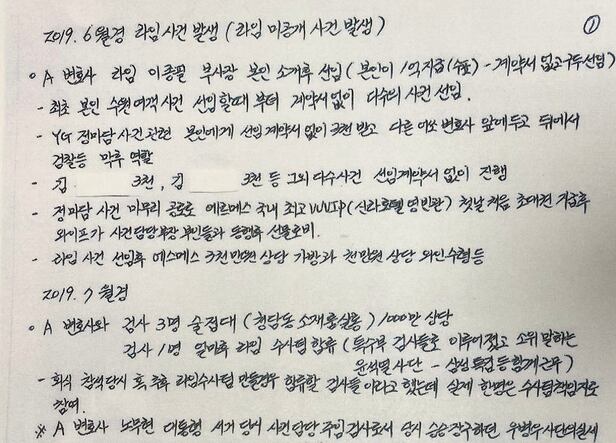 2019. 6월경 라임사건 발생 (라임 미공개 사건 발생)
①
○ A 변호사 라임 이종필 부사장 본인 소개후 선임 (본인이 1억지급(수표) - 계약서 없고 구두선임)
- 최초 본인 수원여객 사건 선임할때 부터 계약서없이 다수의 사건 선임.
- YG 정마담 사건 관련 본인에게 선임계약서 없이 3천 받고 다른 여소 변호사 앞에두고 뒤에서
검찰등 막후 역할
- 김 3천, 김 3천 등 그외 다수사건 선임계약서 없이 진행
- 정마담 사건 마무리 공로로 에르메스 국내 최고 VVIP (신라호텔 영빈관) 첫날 처음 초대권 지급후
와이프가 사건담당부장 부인들과 동행후 선물로비.
- 라임 사건 선임후 에르메스 3천만원 상당 가방과 천만원 상당 와인 수령 등
2019. 7월경
○ A 변호사와 검사 3명 술접대 (청담동 소재 룸살롱) 1000만 상당
검사 1명 얼마후 라임 수사팀 합류 (특수부 검사들로 이루어졌고 소위 말하는
윤석열 사단 - 삼성특검 등 함께 근무)
- 회식 참석당시 혹 추후 라임수사팀 만들경우 합류할 검사들이라고 했는데 실제 한명은 수사팀 책임자로
참여.
※ A 변호사 노무현 대통령 서거 당시 사건담당 주임검사로서 당시 승승장구하던 우병우사단의 실세